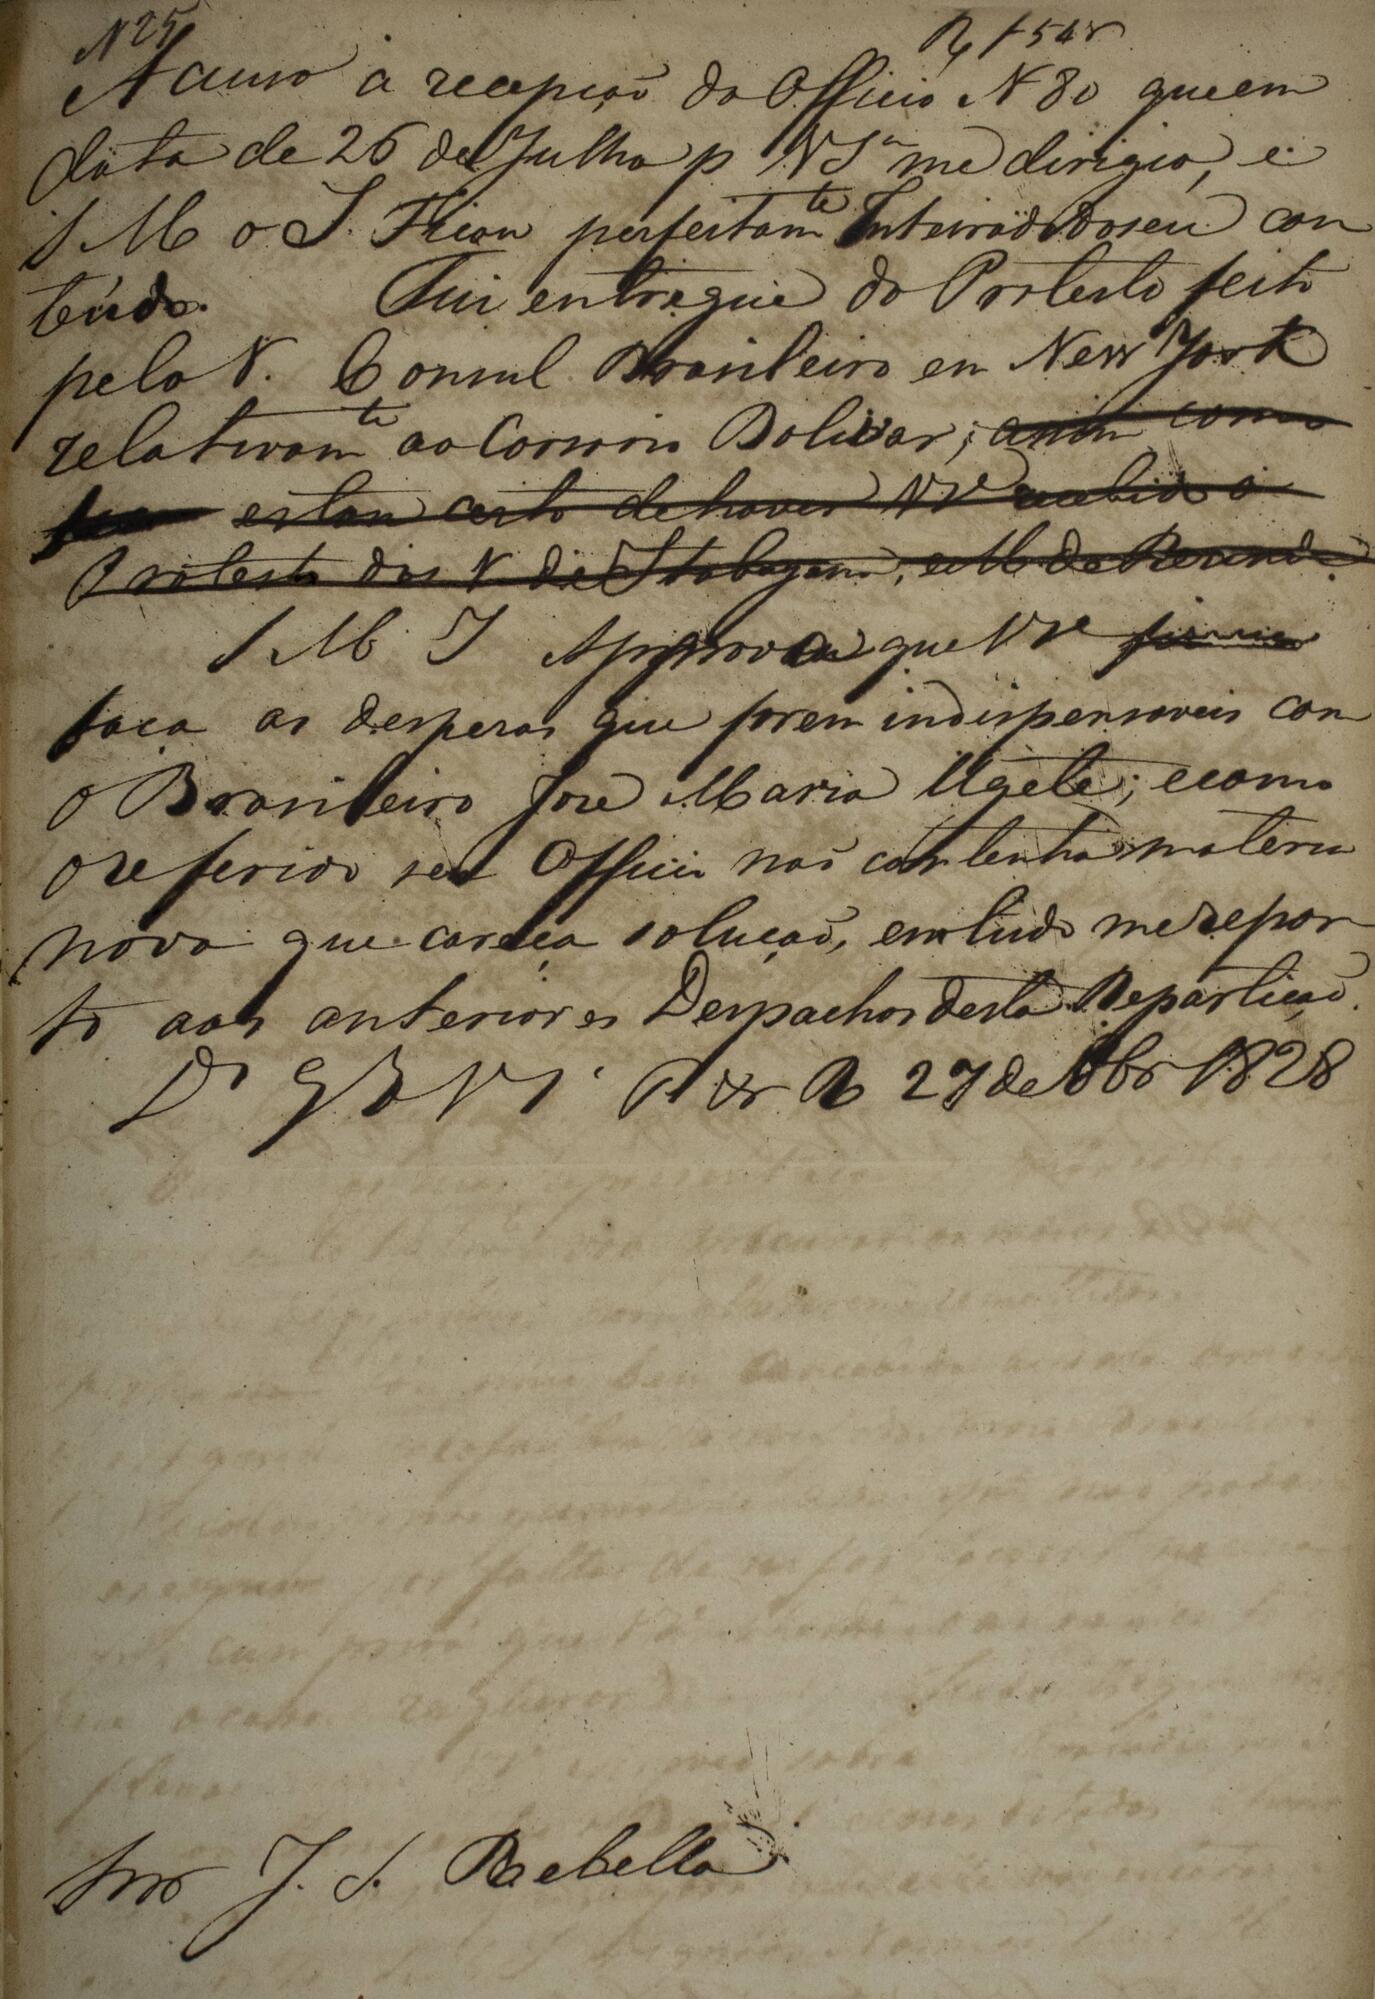 N 25
Accuso a recepção do Officio N 80 que em
data de 26 de Julho p VSª me dirigio, e
S M o I. Ficou perfeitamte Inteirado do seu con
teúdo. Fui entregue do Protesto feito
pelo V. Consul Brasileiro em New York
relativamte ao Corsario Bolivar; assim como
estou certo de haver VSª recebido o
Protesto dos N de , e M de Rezende.
S M I Approva que VSª
faça as despezas que forem indispensaveis com
o Brasileiro Jose Maria Ugete; e como
o referido seu Officio não contenha materia
nova que careça solução, em tudo me repor
to aos anteriores Despachos desta Repartição.
Ds G a VSª P em 27 de 8bro 1828
Snr J. S. Rebello